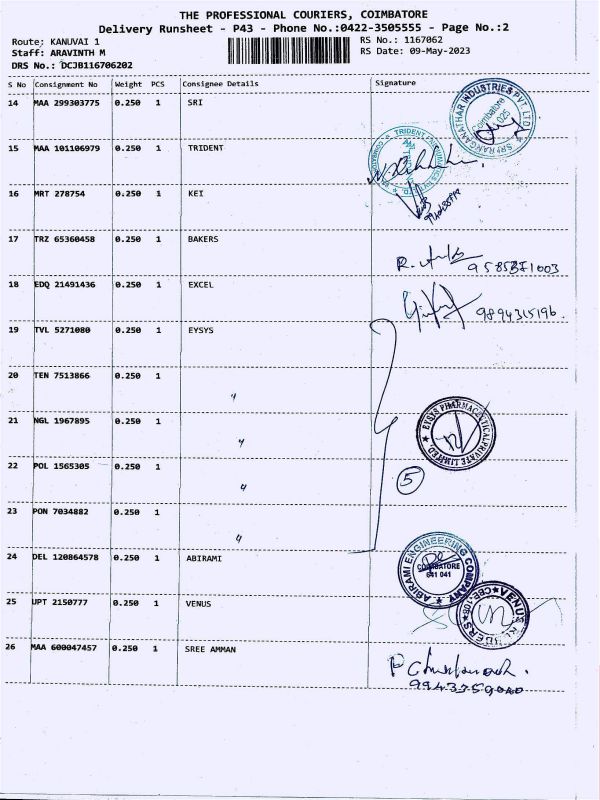 THE PROFESSIONAL COURIERS, COIMBATORE
Delivery Runsheet - P43 - Phone No.:0422-3505555 - Page No.:2
Route; KANUVAI 1
RS No.: 1167062
Staff: ARAVINTH M
RS Date: 09-May-2023
DRS No.: DCJB116706202
S No Consignment No Weight PCS Consignee Details Signature
14 MAA 299303775 0.250 1 SRI
SRI RANGANATHAR INDUSTRIES PVT LTD
Coimbatore
15 MAA 101106979 0.250 1 TRIDENT
16 MRT 278754 0.250 1 KEI
17 TRZ 65360458 0.250 1 BAKERS
18 EDQ 21491436 0.250 1 EXCEL
9894315196.
19 TVL 5271080 0.250 1 EYSYS
20 TEN 7513866 0.250 1 "
21 NGL 1967895 0.250 1 "
EYSYS PHARMACEUTICAL PRIVATE LIMITED.
22 POL 1565305 0.250 1 "
5
23 PON 7034882 0.250 1 "
24 DEL 120864578 0.250 1 ABIRAMI
ABIRAMI ENGINEERING COMPANY
COIMBATORE
641 041
25 UPT 2150777 0.250 1 VENUS
VENUS RUBBERS
26 MAA 600047457 0.250 1 SREE AMMAN